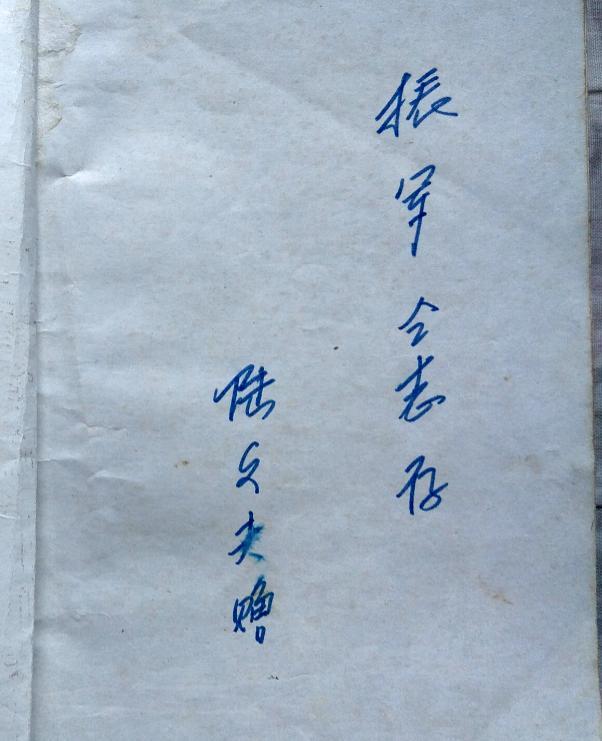 振军仝志存
陆文夫赠